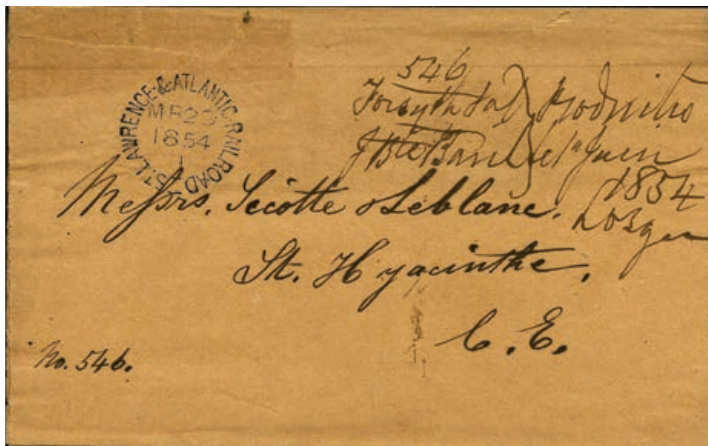 ST. LAWRENCE & ATLANTIC RAILROAD
MR 2
1854
546
Forsyth
J Bte
1854
Messrs. Sicotte & Leblanc.
St. Hyacinthe,
C.E.
No. 546.